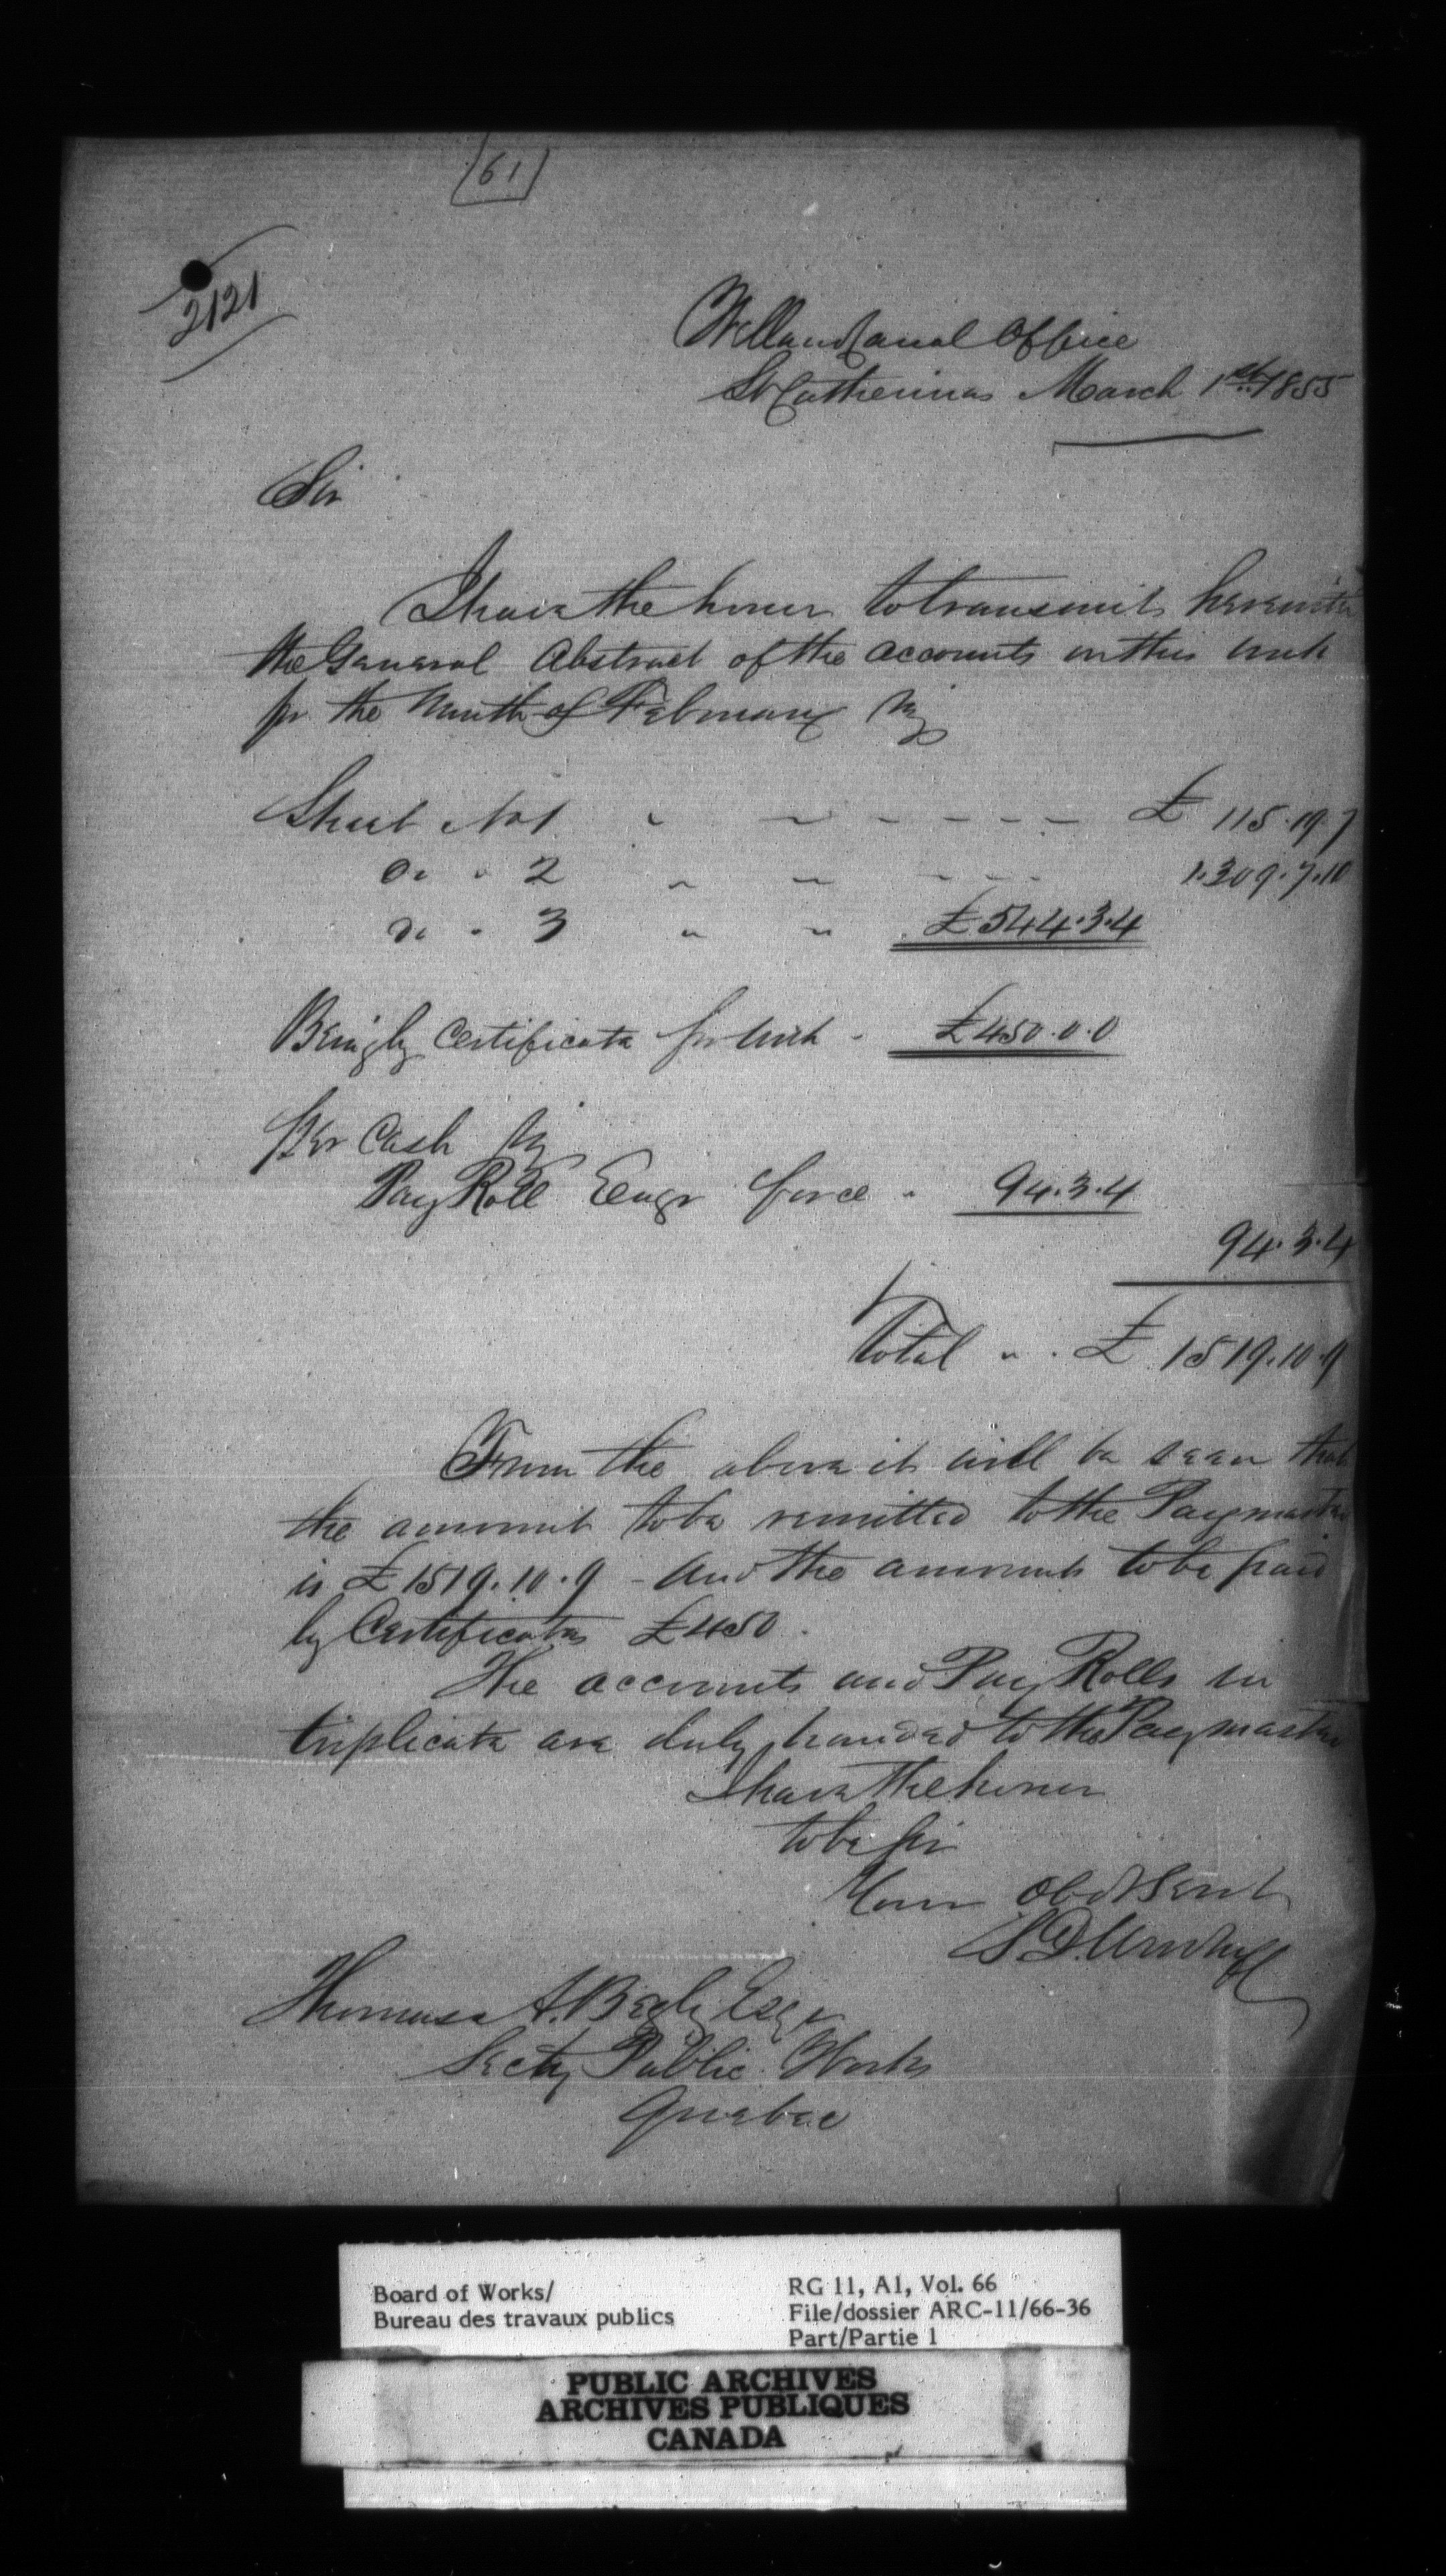 61
2121
Welland Canal Office
St Catherines March 1st 1855
Sir
I have the honor to transmit herewith
the General Abstract of the accounts on this work
for the Month of February viz
Sheet No 1 " " - - - - £ 115.19.7
Do " 2 " " - - - 1.309.7.10
Do " 3 " " £544.3.4
Being by Certificate for Work - £450.0.0
For Cash viz
Pay Roll Engr force " 94.3.4
94.3.4
Total " . £ 1519.10.9
From the above it will be seen that
the amount to be remitted to the Paymaster
is £1519.10.9 - and the amount to be paid
by Certificates £450.
The accounts and Pay Rolls in
triplicate are duly handed to the Paymaster
I have the honor
to be Sir
Your Obdt Servt
S D Woodruff
Thomas A. Begly Esqr
Secty Public Works
Quebec
Board of Works/
Bureau des travaux publics
RG 11, A1, Vol. 66
File/dossier ARC-11/66-36
Part/Partie 1
PUBLIC ARCHIVES
ARCHIVES PUBLIQUES
CANADA